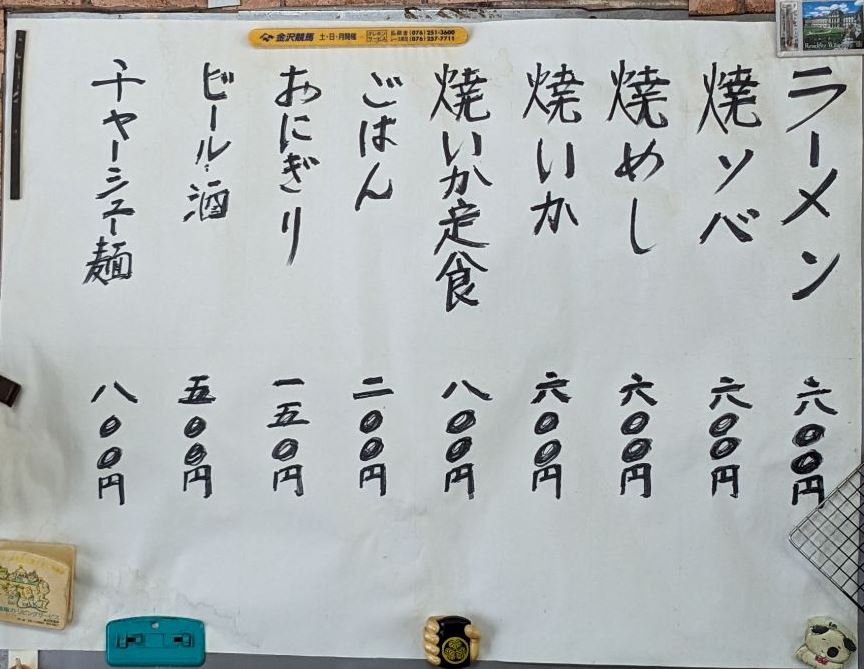 ラーメン 六〇〇円
焼ソバ 六〇〇円
焼めし 六〇〇円
焼いか 六〇〇円
焼いか定食 八〇〇円
ごはん 二〇〇円
おにぎり 一五〇円
ビール・酒 五〇〇円
チャーシュー麺 八〇〇円
金沢競馬 土・日・月開催
テレホンサービス
(076)251-3600
(076)257-7711